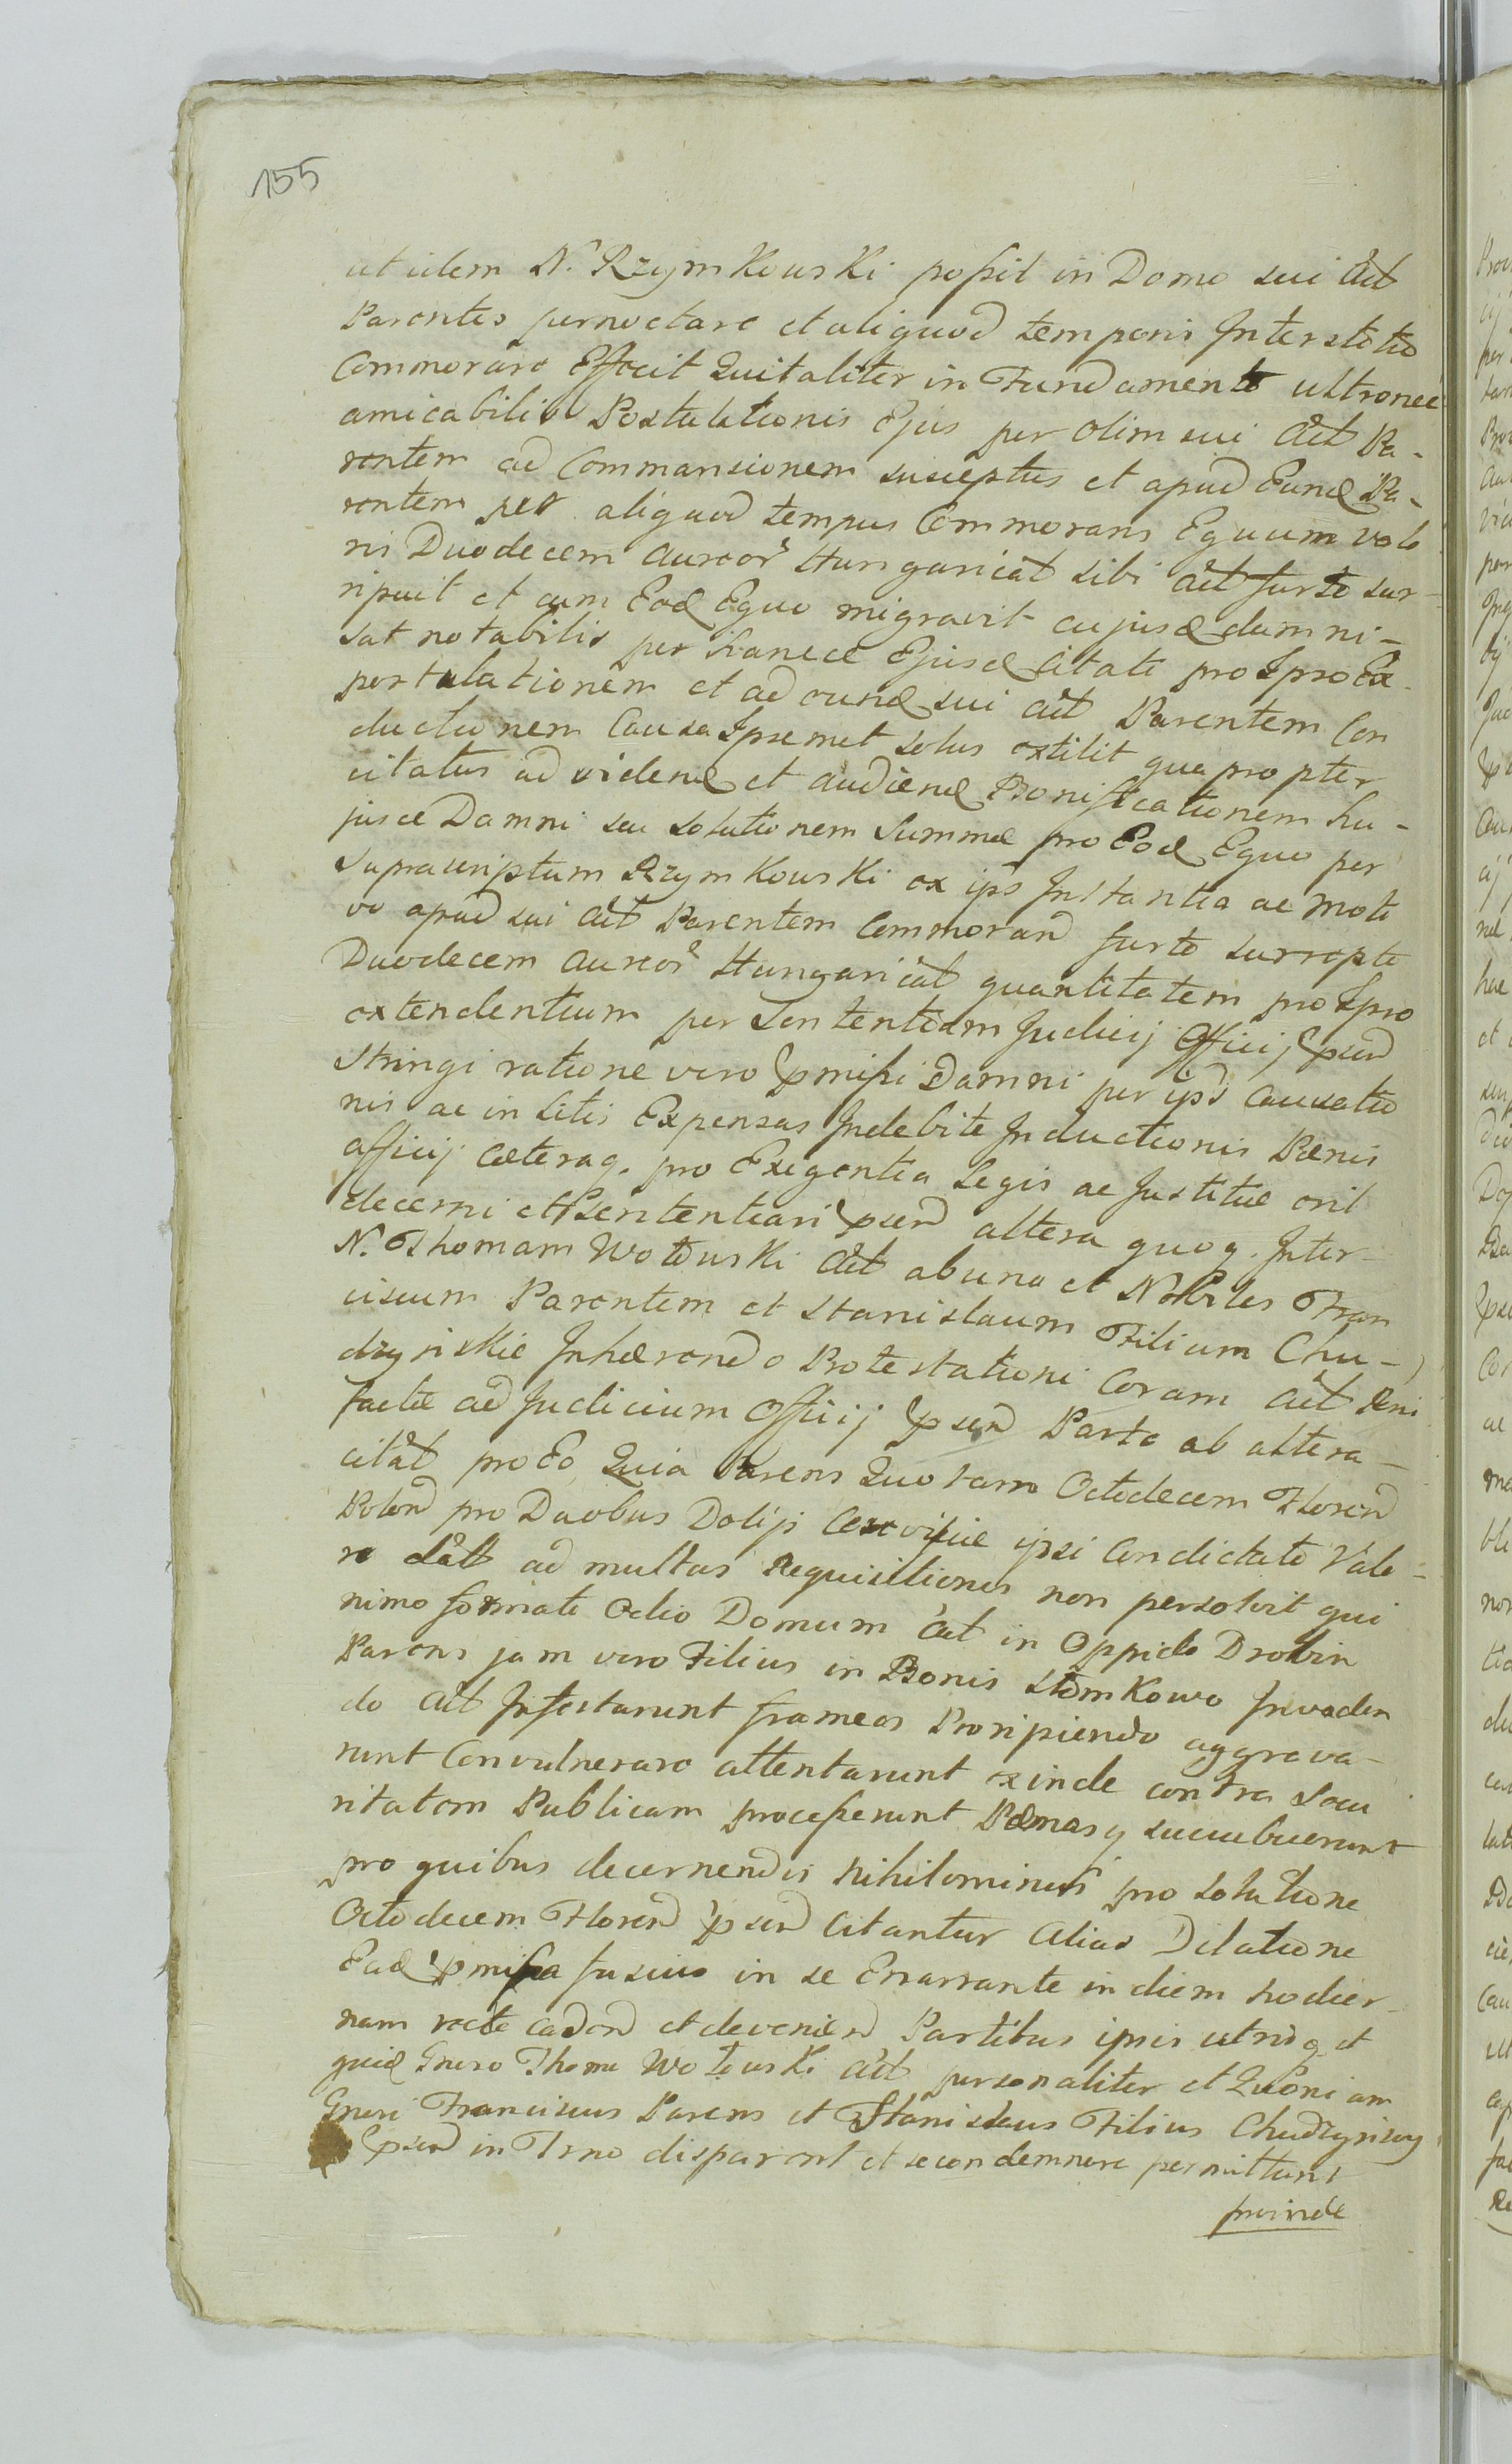 155
ut idem N. RzymKowsKi possit in Domo sui Act
Parentis pernoctare et aliquod temporis Interstitio
Commorare Effecit Qui taliter in Fundamento ultroneae
amicabilis Postulationis Ejus per olim sui Act Pa-
rentem ad Commansionem susceptus et apud Eund Pa-
rentem per aliquod tempus Commorans Equum valo
ris Duodecem Aureor Hungarical sibi Act furto sur-
ripuit et cum Eod Equo migravit cujusd damni
sat notabilis per hancce Ejusd Citati pro Ipso Ex
portulationem et ad eund sui Act Parentem Con
ductionem Causa Ipsemet solus extitit qua propter
citatus ad vidend et audiend Bonificationem hu-
jusce Damni seu solutionem Summae pro Eod Equo per
Suprascriptum RzymKowsKi ex ips Instantia ac moti
vo apud sui Act Parentem Commorand furto surrepto
Duodecem Aureor Hungarical quantitatem pro Ipso
extendentium per Sententiam Judicij Officij psen
stringi ratione vero pmissi Damni per ips causatio
nis ac in Litis Expensas Indebite Inductionis Paenis
afficij Caeteraq. pro Exigentia Legis ac Justitiae erit
decerni et Sententiari psen altera quoq. Inter
N. Thomam WotowsKi Act ab una et Nobiles Fran
ciscum Parentem et Stanislaum Filium Chu-
dzynskie Inhaerendo Protestationi Coram Act
factae ad Judicium Officij psen Parte ab altera
citat pro Eo Quia Parens Quotam Octodecem Floren
Polon pro Duobus Dolijs Cerevisiae ipsi Condictato Vale-
re dat ad multas Requisitiones non persolvit qui
nimo formato Odio Domum Act in Oppido Drobin
Parens jam vero Filius in Bonis SlomKowo Invaden
do Act Infestarunt frameas Proripiendo aggrava-
runt Convulnerare attentarunt exinde contra Secu
ritatem Publicam processerunt Paenasq succubuerunt
pro quibus decernendis nihilominus pro solutione
Octodecem Floren psen Citantur Alias Dilatione
Ead pmissa fusius in se Enarrante in diem hodier-
nam recte caden et devenien Partibus ipsis utrisq et
quid Gneroso Thoma WotowsKi Act personaliter et Quoniam
Gneri Franciscus Parens et Stanislaus Filius Chudzynscy
psen in Trno disparent et se condemnare permittunt
proinde